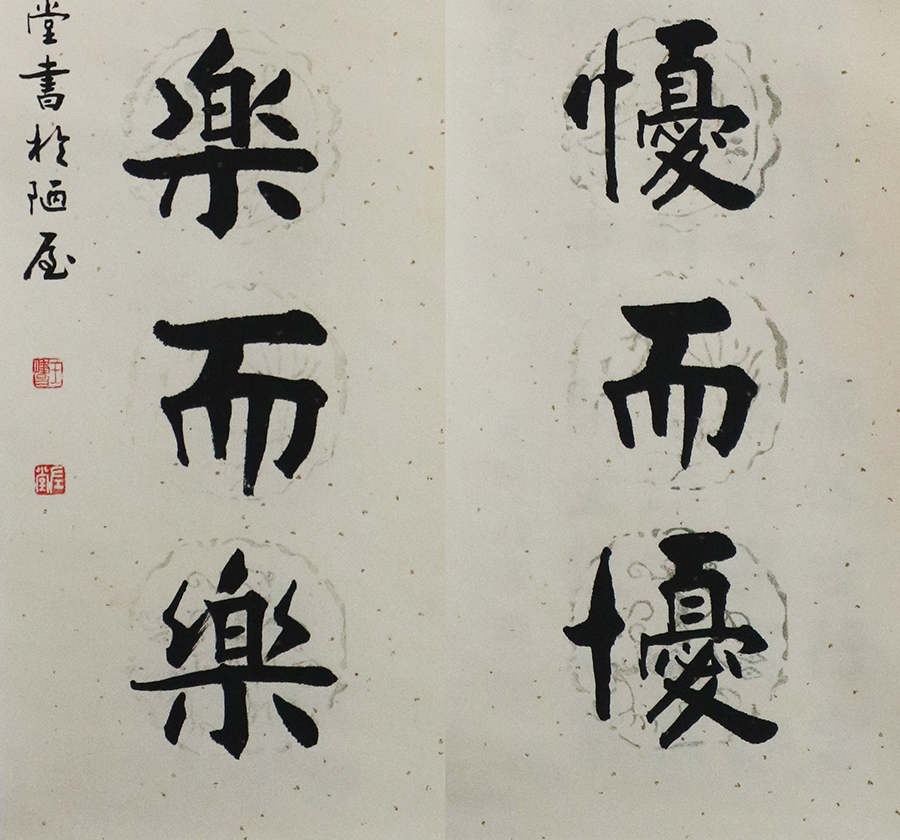 懮而懮
楽而楽
堂書於陋屋